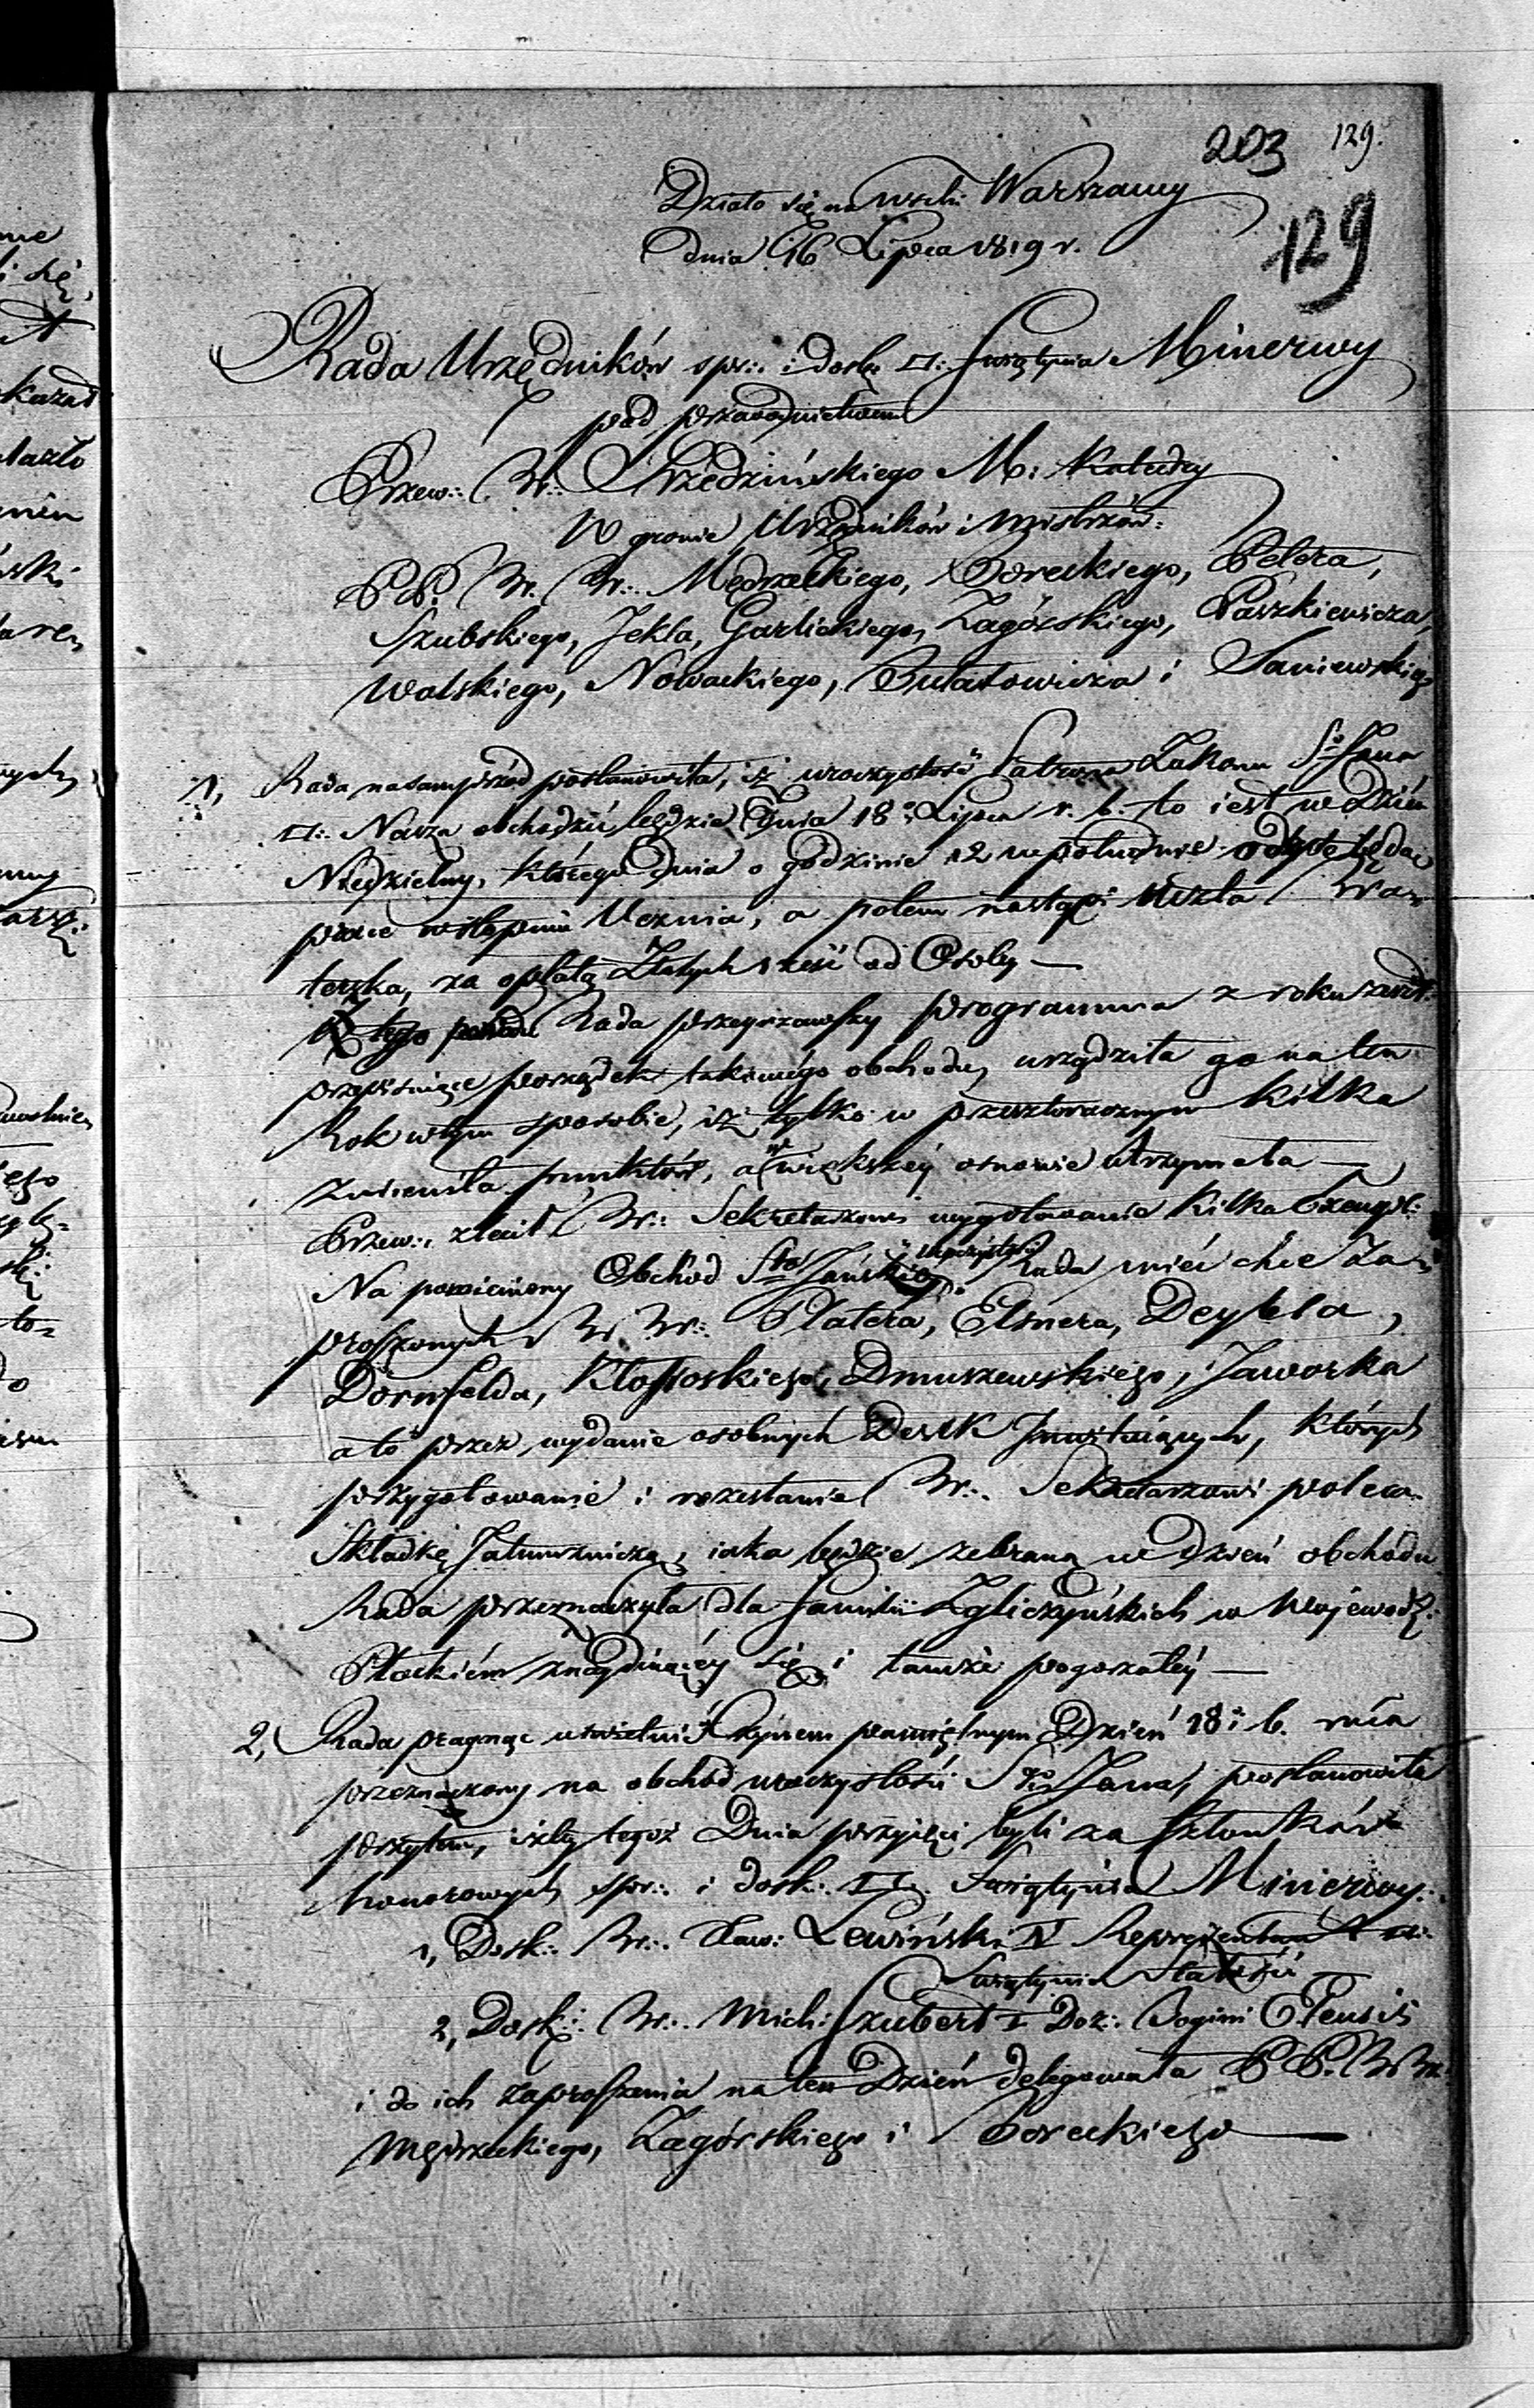 203 129.
129
Działo się na Wsch: Warszawy
dnia 16 Lipca 1819 r.
Rada Urzędników spr:. i dosk: □:. Świątynia Minerwy
pod przewodnictwem
Przew:. Br:. Skrzedzińskiego M: Katedry
W gronie Urzędników i Mistrzów:
PP. Br. Br:. Mędrzeckiego, Boreckiego, Peltza,
Szubskiego, Jekla, Garlickiego, Zagórskiego, Paszkiewicza,
Walskiego, Nowackiego, Bułatowicza i Saniewskiego
1, Rada nasamprzód postanowiła, iż uroczystość Patrona Zakonu Sgo Jana
□:. Nasza obchodzić będzie Dnia 18o Lipca r. b. to iest w Dzień
Niedzielny, którego dnia o godzinie 12 w południe odbyte będą
prace w stopniu Ucznia, a potem nastąpi Uczta Bra=
terska, za opłatą Złotych sześć od Osoby —
Z tego powodu Rada przeyrzawszy programma z roku zeszł:
przepisuiące porządek takowego obchodu, urządziła go na ten
Rok w tym sposobie, iż tylko w przeszłorocznym kilka
zmieniła punktów, a w większéy osnowie utrzymała —
Przew:. zlecił Br:. Sekretarzowi wygotowanie kilka Exempl:
Na pomieniony Obchód Sto Jańskiey uroczystości Rada mieć chce Za=
proszonych Br Br:. Platera, Elsnera, Deybla,
Dornfelda, Kłossoskiego, Dmuszewskiego, Jaworka
a to przez wydanie osobnych Desek Inwituiących, których
przygotowanie i rozesłanie Br:. Sekretarzowi poleca.
Składkę Jałmużniczą, iaka będzie zebraną w Dzień obchodu
Rada przeznaczyła dla familii Zgliczyńskich w Wojewódz:
Płockiém znayduiącéy się i tamże pogorzałéy —
2, Rada pragnąc uświetnić Czynem pamiętnym Dzień 18 b. mca
przeznaczony na obchód uroczystości Sgo Jana, postanowiła
przytem, iżby tegoż Dnia przyjęci byli za Członków
honorowych spr:. i dosk:. □:. Świątynia Minerwy:.
1, Dosk:. Br:. Xaw: Lewiński IV Reprezentant □:.
Świątynia Stałości
2, Dosk:. Br:. Mich: Szubert I Doz:. Bogini Eleusis
i do ich zaproszenia na ten Dzień delegowała PP. Br Br.
Mędrzeckiego, Zagórskiego i Boreckiego —